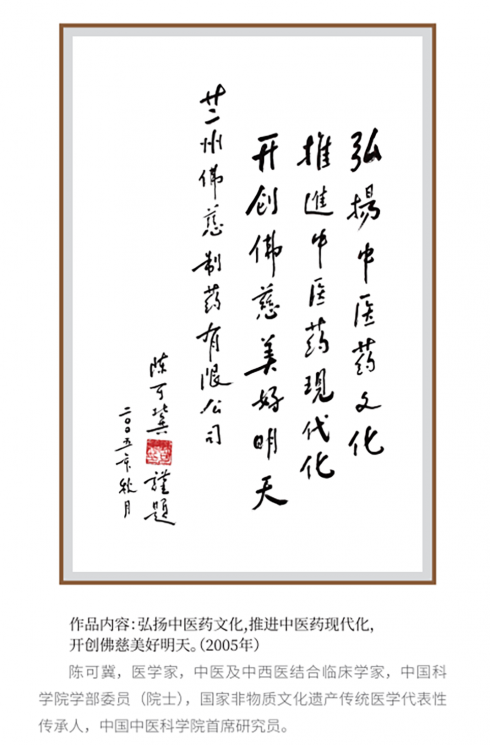 弘揚中医药文化
推進中医药現代化
开创佛慈美好明天
兰州佛慈制药有限公司
陈可冀 謹題
二〇〇五年秋月
作品内容：弘扬中医药文化，推进中医药现代化，
开创佛慈美好明天。（2005年）
陈可冀，医学家，中医及中西医结合临床学家，中国科
学院学部委员（院士），国家非物质文化遗产传统医学代表性
传承人，中国中医科学院首席研究员。